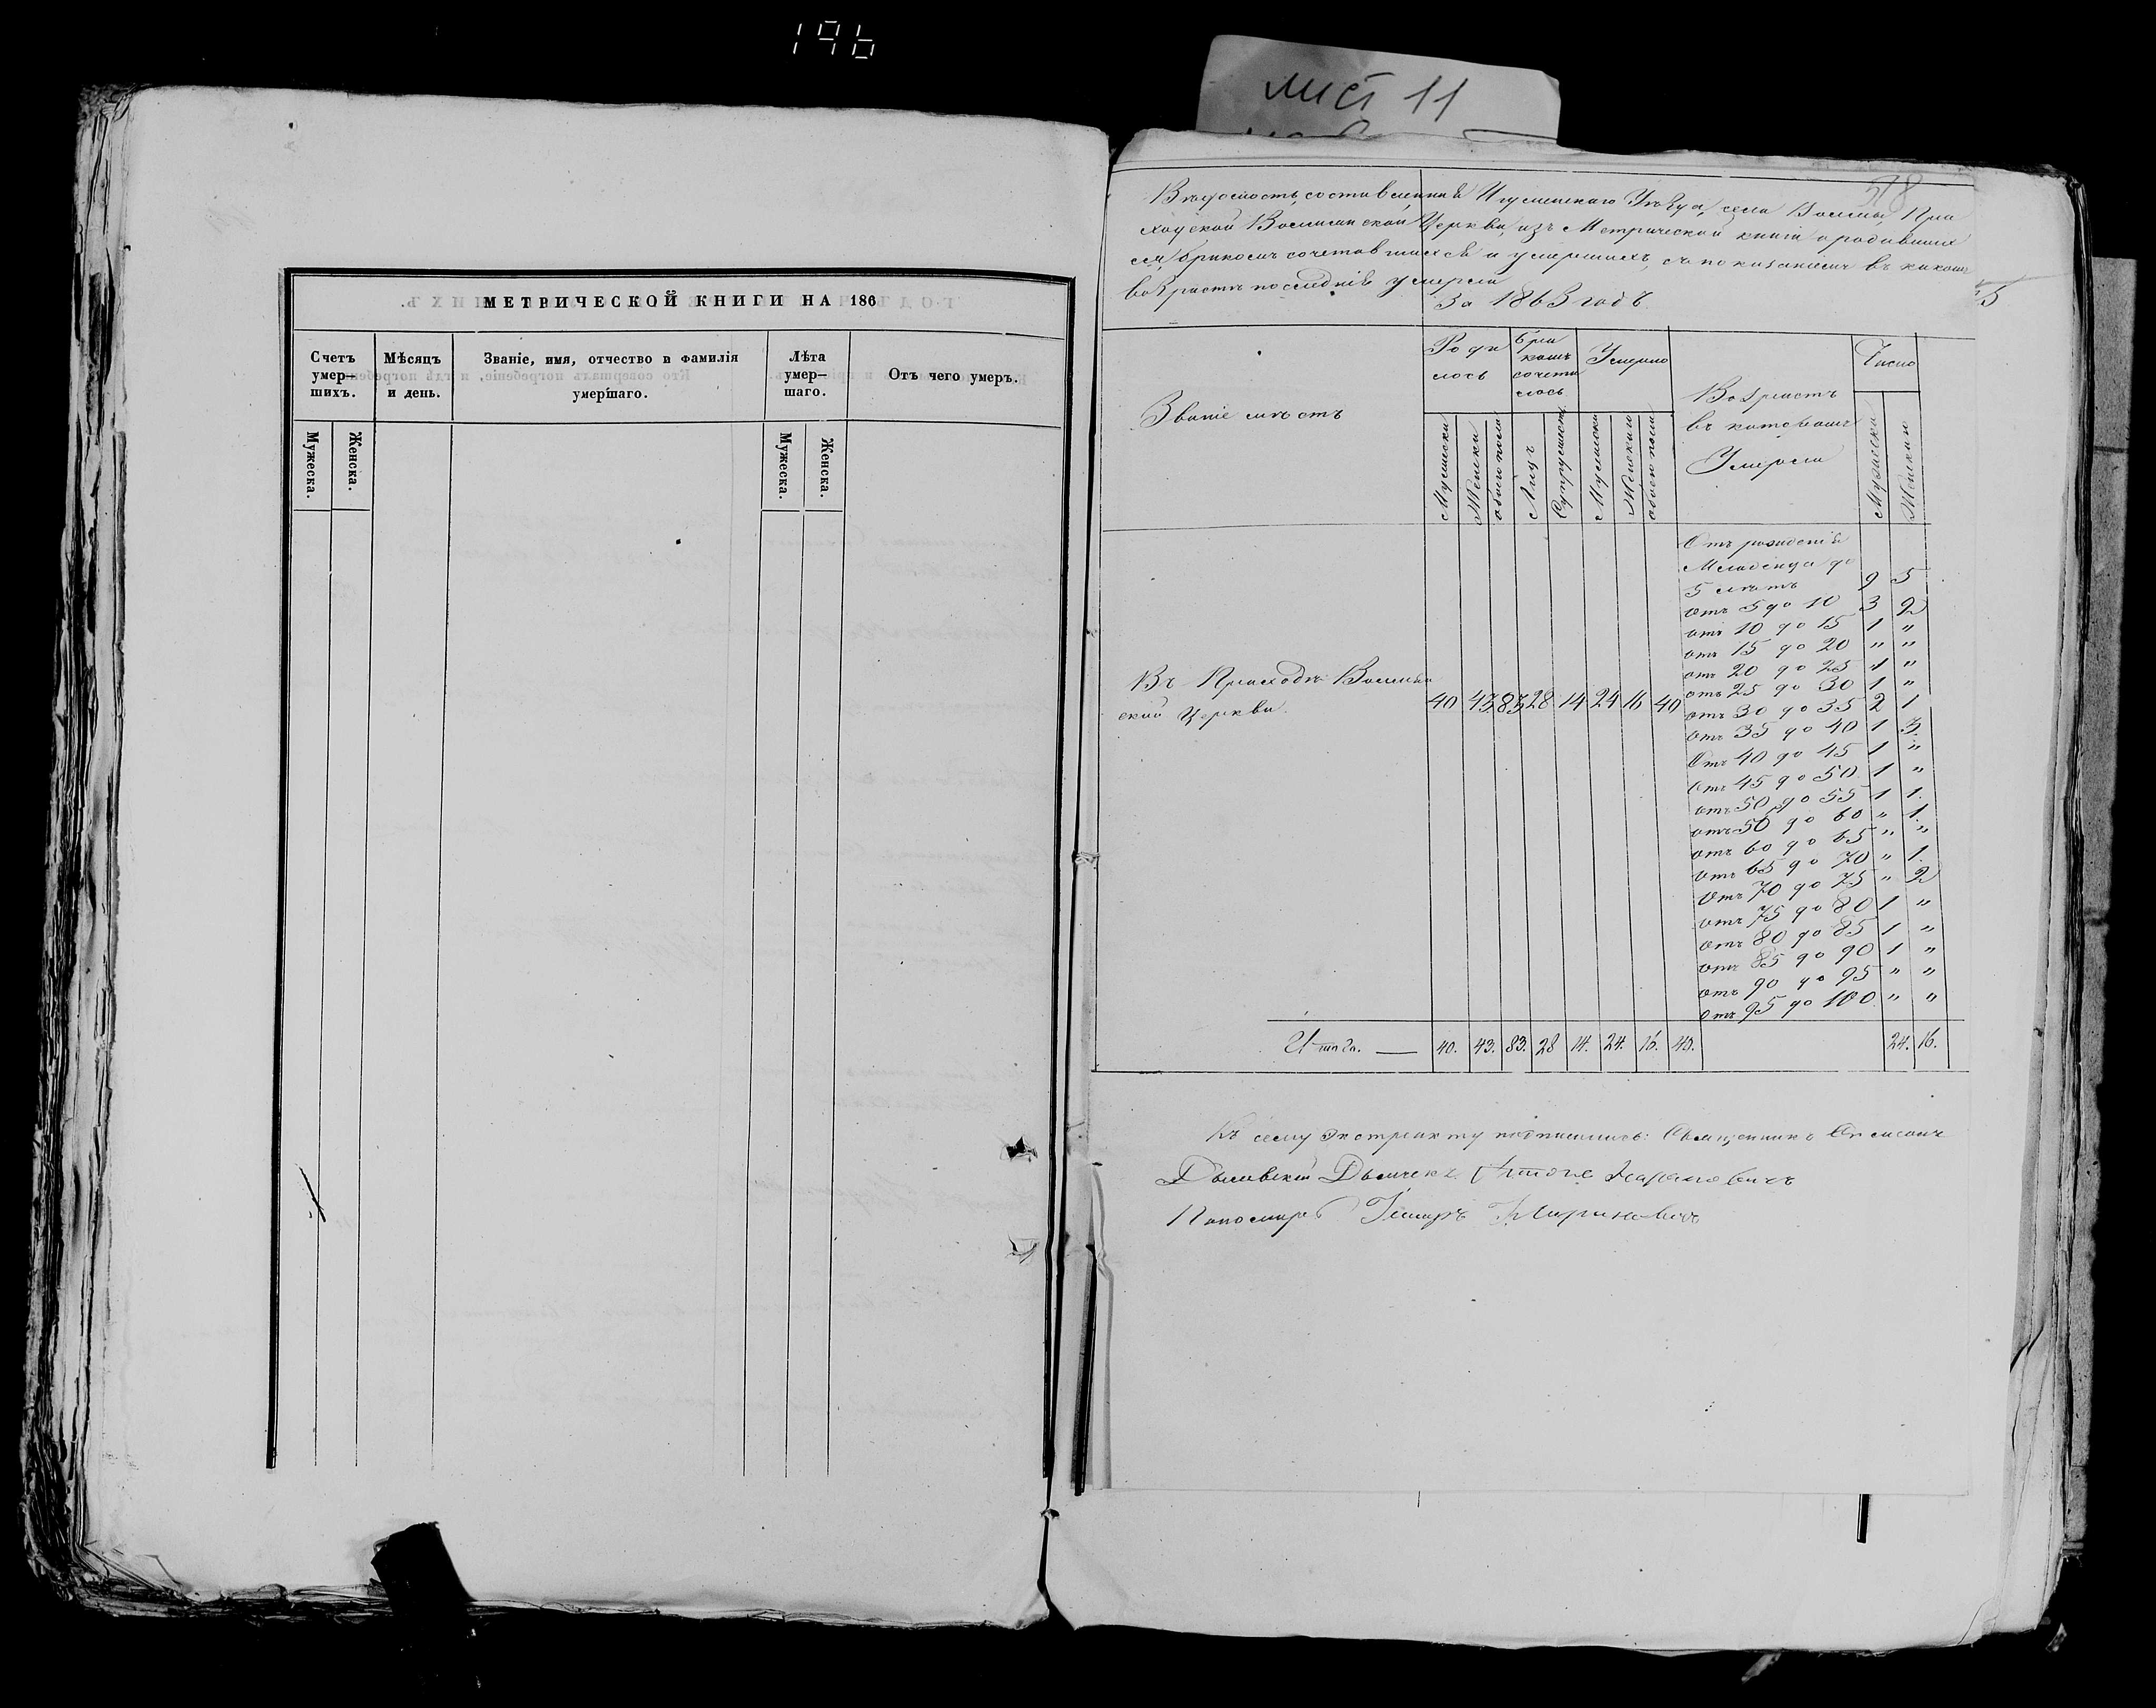 196
лист 11
МЕТРИЧЕСКОЙ КНИГИ НА 186
Счетъ умер—шихъ.
Мѣсяцъ и день.
Званіе, имя, отчество и фамилія умершаго.
Лѣта умер—шаго.
Отъ чего умеръ.
Мужеска.
Женска.
Мужеска.
Женска.
Вѣдомость, составленная Игуменскаго Уѣзда, села Волмы, При
ходской Волмянской Церкви, изъ Метрической книги о родивших
ся, бракомъ сочетавшихся и умершихъ, съ показаніемъ въ какомъ
возрастѣ последніе умерли
За 1863 годъ.
Званіе мѣстъ
Роди
лось
Бра
комъ
сочета
лось
Умерло
Возрастъ
въ которомъ
Умерли
Число
Мужеска
Женска
обоего пола
Лицъ
Супружествъ
Мужеска
Женска
обоего пола
Мужеска
Женска
Отъ рожденія
Младенца до
5 лѣтъ 9 5
отъ 5 до 10 3 2
отъ 10 до 15 1 "
отъ 15 до 20 " "
отъ 20 до 25 1 "
отъ 25 до 30 1 "
отъ 30 до 35 2 1
отъ 35 до 40 1 3.
Отъ 40 до 45 1 "
Отъ 45 до 50 1 "
отъ 50 до 55 1 1.
отъ 50 до 60 " 1.
отъ 60 до 65 " "
Отъ 65 до 70 " 1.
Отъ 70 до 75 " 2
отъ 75 до 80 1 "
отъ 80 до 85 1 "
отъ 85 до 90 1 "
отъ 90 до 95 " "
отъ 95 до 100. " "
Въ Приходѣ Волмян
ской Церкви. 40 43 83 28 14 24 16 40
Итого. — 40. 43. 83. 28 14. 24. 16. 40. 24. 16.
Къ сему экстракту подписались: Священникъ
Дьячекъ
Пономарь